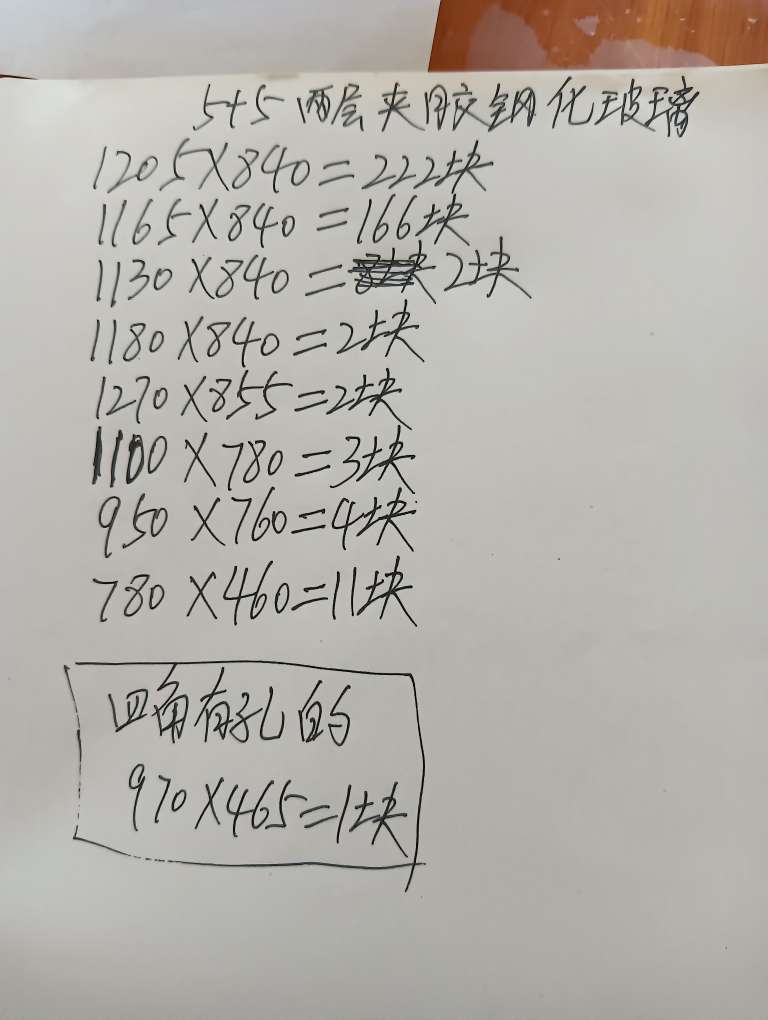 5+5两层夹胶钢化玻璃
1205×840=222块
1165×840=166块
1130×840=2块
1180×840=2块
1270×855=2块
1100×780=3块
950×760=4块
780×460=11块
四角有孔的
970×465=1块